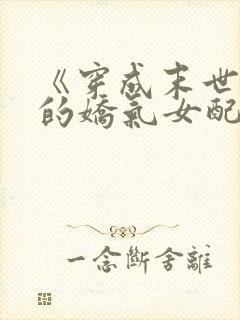 《穿成末世
的嬌氣女配
一念斷舍離